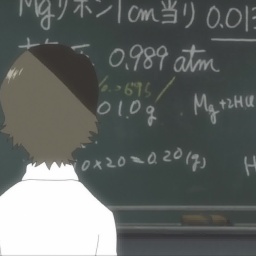 Mgリボン1cm当り 0.013
0.989 atm
01.0g Mg+2HCl
0×20=0.20(g) H